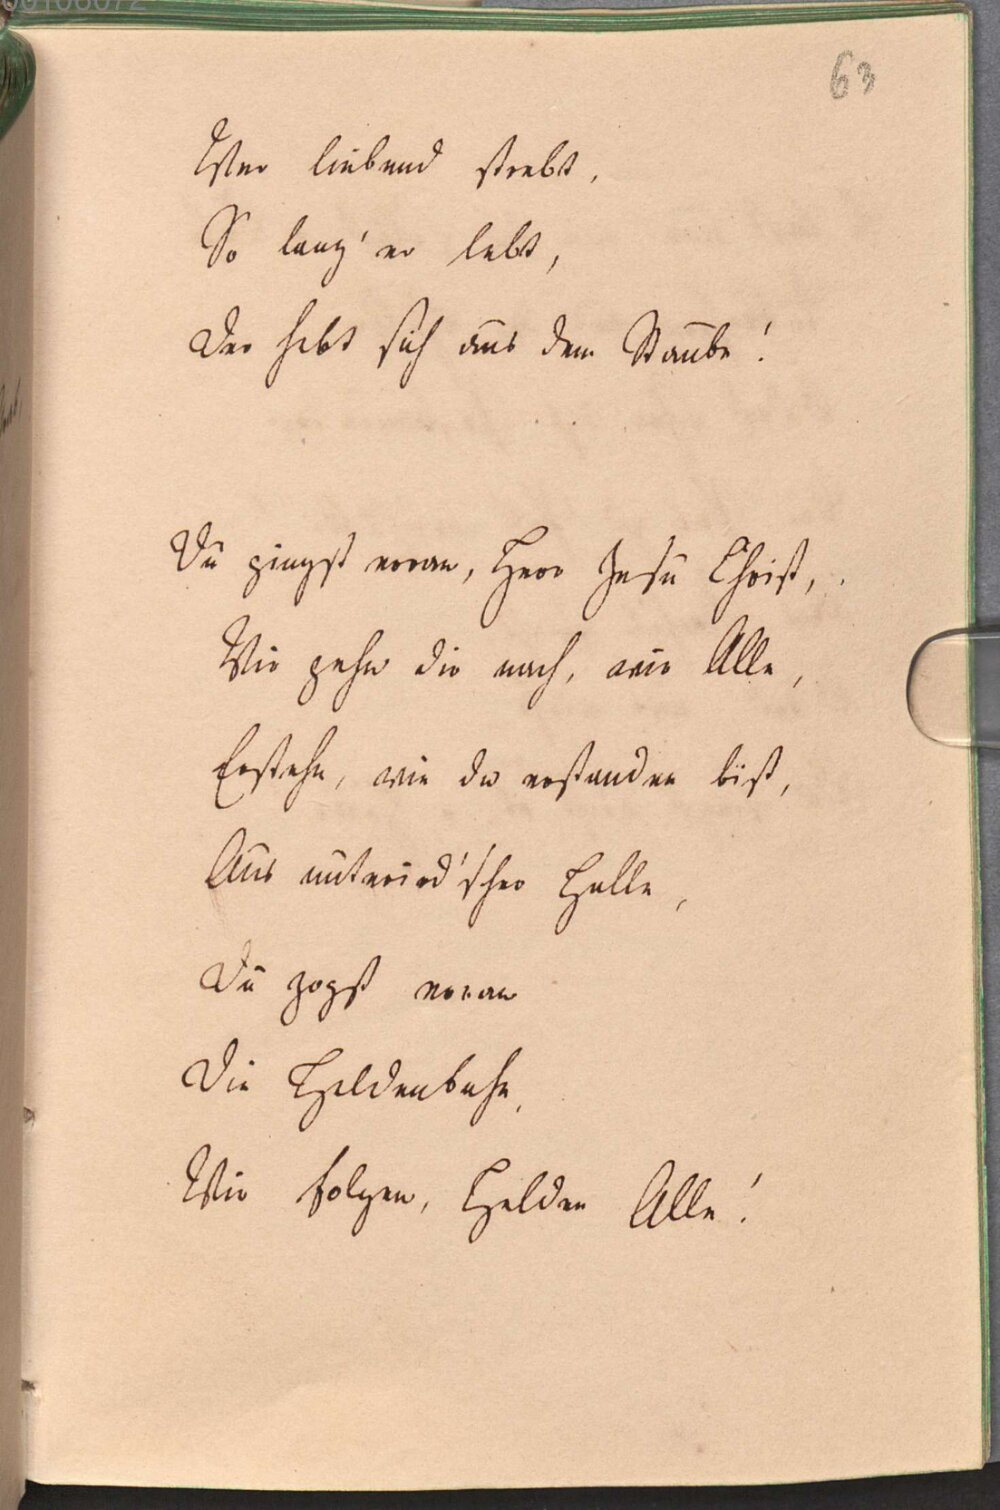 63
Wer liebend strebt,
So lang' er lebt,
Der hebt sich aus dem Staube!
Du gingst voran, Herr Jesu Christ,
Wir gehn dir nach, wir Alle,
Erstehn, wie du erstanden bist,
Aus unterird'scher Halle,
Du zogst voran
Die Heldenbahn,
Wir folgen, Helden Alle!